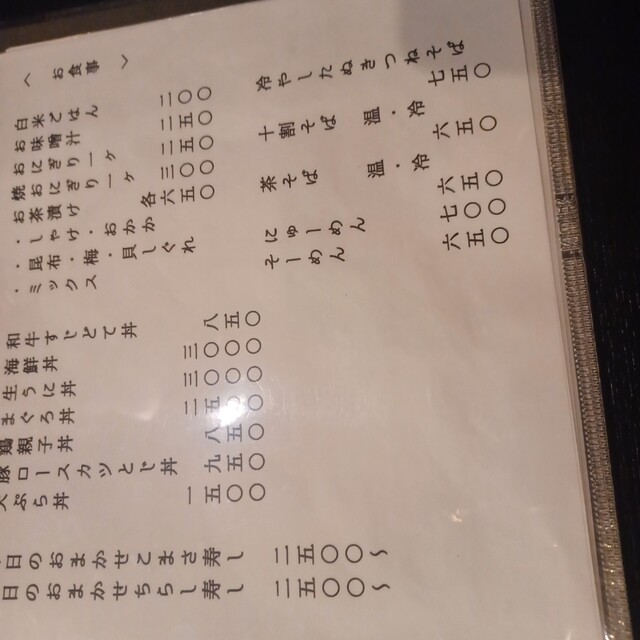 〈お食事〉
白米ごはん 二〇〇
お味噌汁 二五〇
おにぎり一ヶ 二五〇
焼おにぎり一ヶ 三〇〇
お茶漬け 各六五〇
・しゃけ・おかか
・昆布・梅・貝しぐれ
・ミックス
冷やしたぬきつねそば 七五〇
十割そば 温・冷 六五〇
茶そば 温・冷 六五〇
にゅーめん 七〇〇
そーめん 六五〇
和牛すじどて丼 八五〇
海鮮丼 三〇〇〇
生うに丼 三〇〇〇
まぐろ丼 二五〇〇
鶏親子丼 八五〇
豚ロースカツとじ丼 九五〇
天ぷら丼 一五〇〇
日のおまかせこまき寿し 二五〇〇〜
日のおまかせちらし寿し 二五〇〇〜